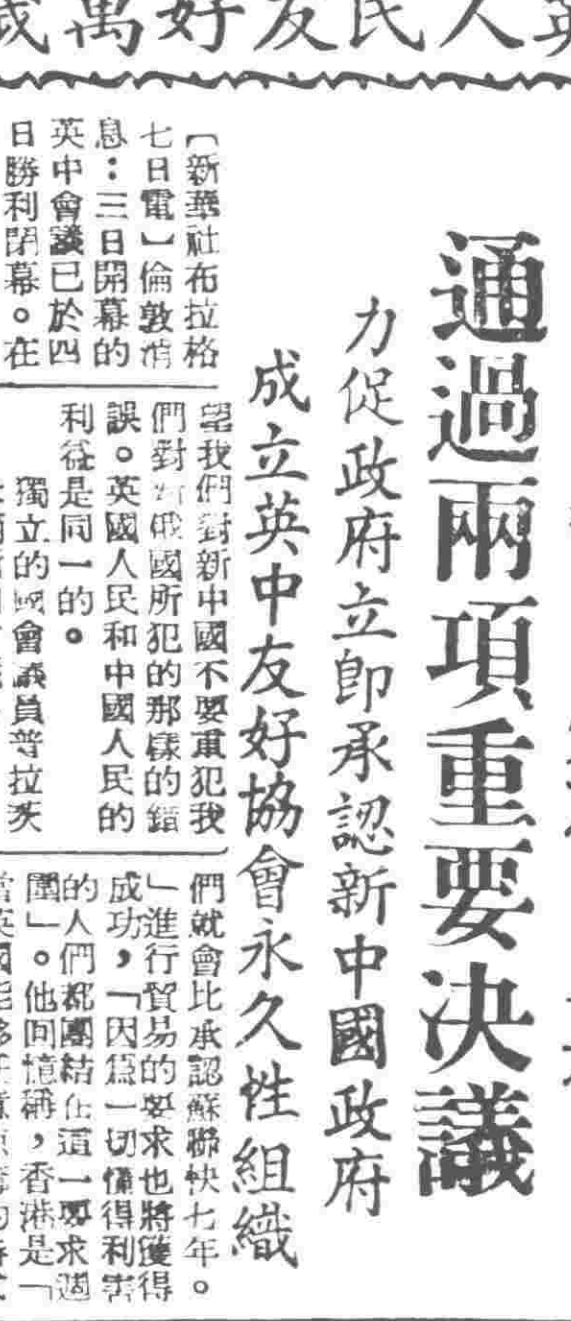 人民友好萬
通過兩項重要決議
力促政府立即承認新中國政府
成立英中友好協會永久性組織
〔新華社布拉格
七日電〕倫敦消
息：三日開幕的
英中會議已於四
日勝利閉幕。在
望我們對新中國不要重犯我
們對俄國所犯的那樣的錯
誤。英國人民和中國人民的
利益是同一的。
獨立的國會議員普拉茨
們就會比承認蘇聯快七年。
」進行貿易的要求也將獲得
成功，「因為一切懂得利害
的人們都團結在這一要求週
圍」。他回憶稱，香港是「